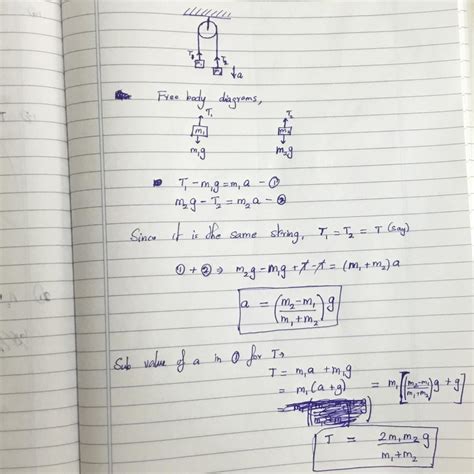 T₁ T₂
m₁ m₂ ↓a
Free body diagrams,
T₁ T₂
m₁ m₂
m₁g m₂g
T₁ - m₁g = m₁a - ①
m₂g - T₂ = m₂a - ②
Since it is the same string, T₁ = T₂ = T (say)
① + ② → m₂g - m₁g + T - T = (m₁ + m₂) a
a = (m₂ - m₁ / m₁ + m₂) g
Sub value of a in ① for T→
T = m₁a + m₁g
= m₁(a + g) = m₁[(m₂ - m₁ / m₁ + m₂) g + g]
T = 2m₁m₂g / m₁ + m₂